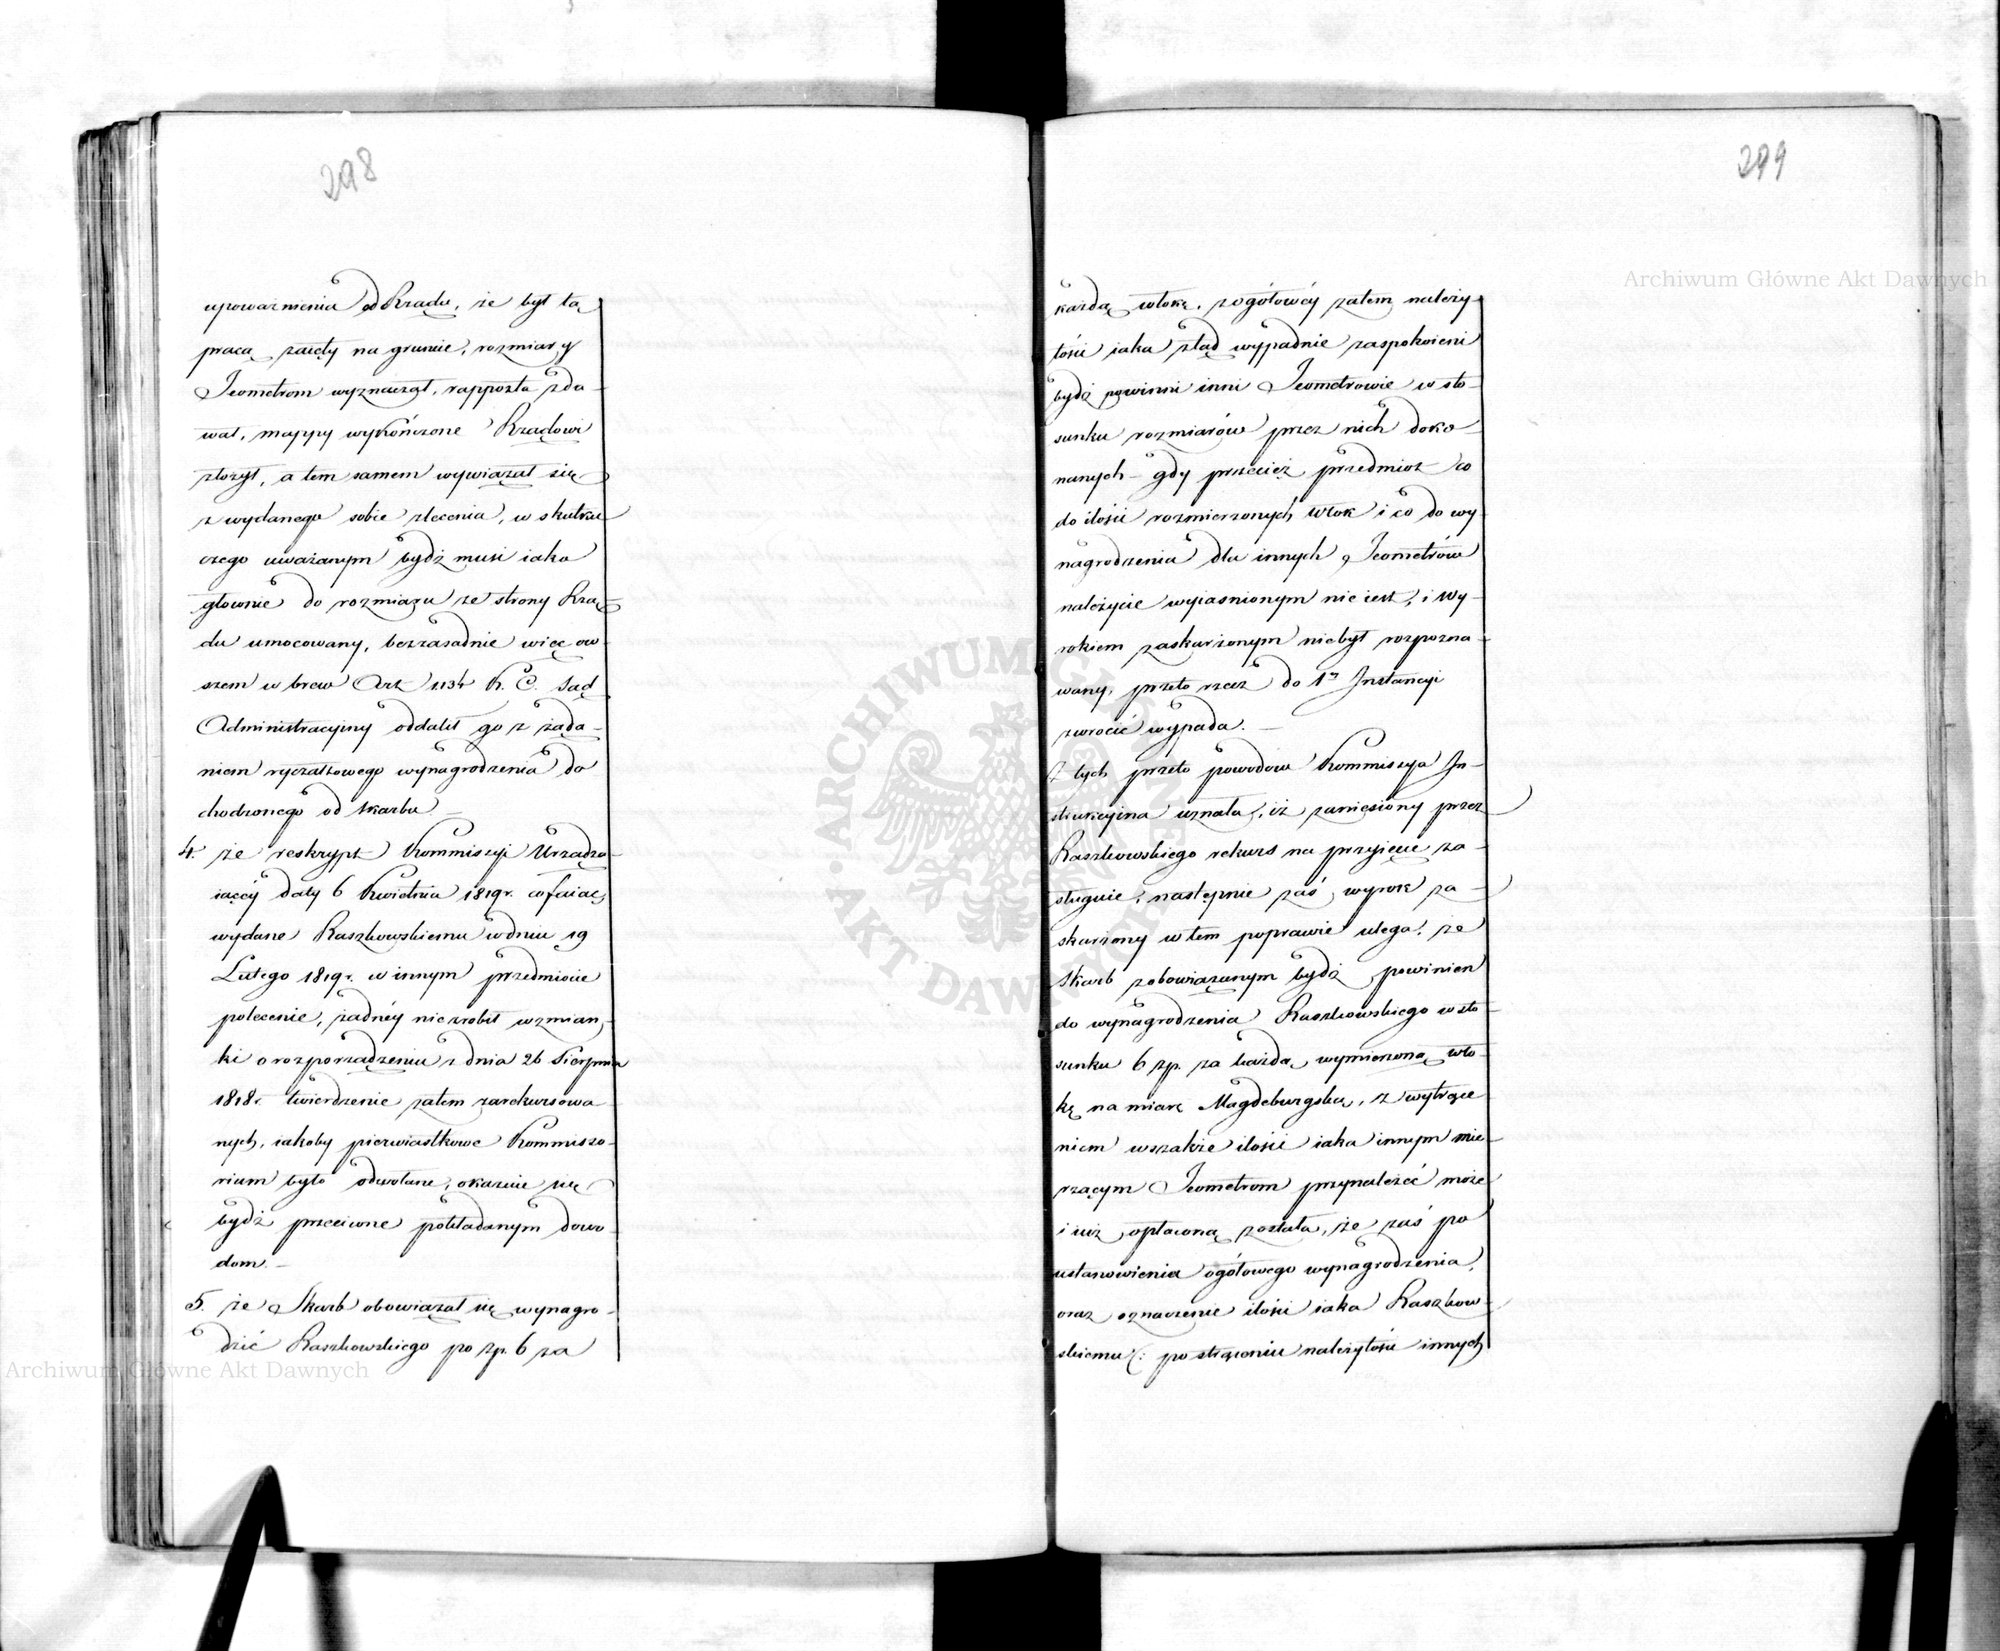 298
upoważnienia od Rządu, że był tą
pracą zaięty na gruncie, rozmiary
Jeometrom wyznaczał, rapporta zda-
wał, mappy wykończone Rządowi
złożył, a tem samem wywiązał się
z wydanego sobie zlecenia, w skutku
czego uważanym bydź musi iako
głownie do rozmiaru ze strony Rzą-
du umocowany, bezzasadnie więc ow-
szem w brew Art 1134 K. C. Sąd
Administracyiny oddalił go z żąda-
niem ryczałtowego wynagrodzenia do
chodzonego od Skarbu. -
4. że reskrypt Kommissyi Urządza-
iącéy daty 6 Kwietnia 1819r. cofaiąc
wydane Raszkowskiemu w dniu 19
Lutego 1819r. w innym przedmiocie
polecenie, żadnéy niezrobił wzmian-
ki o rozporządzeniu z dnia 26 Sierpnia
1818r. twierdzenie zatem zarekursowa-
nych, iakoby pierwiastkowe Kommisso-
rium było odwołane, okazuie się
bydź przeciwne pokładanym dowo-
dom. -
5. że Skarb obowiązał się wynagro-
dzić Raszkowskiego po zp. 6 za
Archiwum Główne Akt Dawnych
299
Archiwum Główne Akt Dawnych
każdą włokę, z ogółowéy zatem należy-
tości iaka ztąd wypadnie zaspokoieni
bydź powinni inni Jeometrowie w sto-
sunku rozmiarów przez nich doko-
nanych - gdy przecież przedmiot co
do ilości rozmierzonych włok i co do wy-
nagrodzenia dla innych Jeometrów
należycie wyiasnionym nie iest, i wy-
rokiem zaskarżonym niebył rozpozna-
wany, przeto rzecz do 1éy Instancyi
zwrocić wypada. -
Z tych przeto powodów Kommissya In-
strukcyina uznała, iż zaniesiony przez
Raszkowskiego rekurs na przyięcie za-
sługuie, następnie zaś wyrok za-
skarżony w tem poprawie ulega, że
Skarb zobowiązanym bydź powinien
do wynagrodzenia Raszkowskiego w sto-
sunku 6 zp. za każdą wymierzoną wło-
kę na miarę Magdeburgską, z wytrące
niem wszakże ilości iaka innym mie-
rzącym Jeometrom przynależeć może
i iuż opłaconą została, że zaś po
ustanowienia ogółowego wynagrodzenia,
oraz oznaczenie ilości iaka Raszkow-
skiemu /: po strąceniu należytości innych
ARCHIWUM GŁÓWNE AKT DAWNYCH